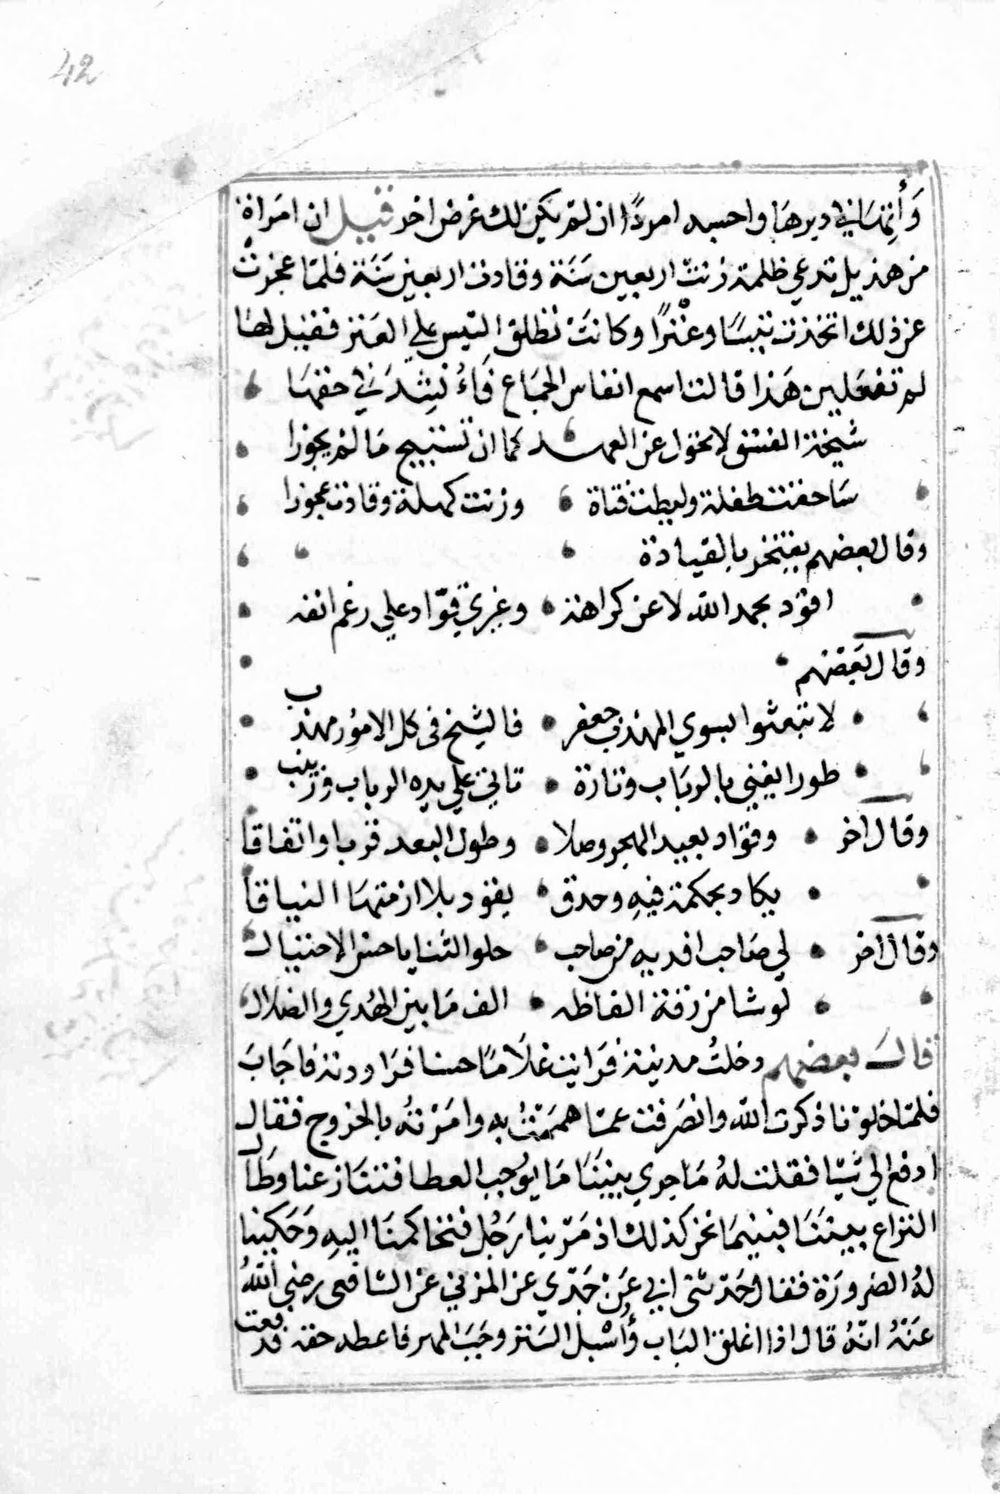 42
وَأَتِمسَاني ديرها واحسبه امردًا ان لم يكن لك غرض اخر قيل ان امراة
من هذيل تدعي ظلمة زنت اربعين سَنَة وقادت اربعين سَنَة فلمّا عجزت
عن ذلك اتخذت تيسًا وعَنْزًا وكانَت تطلق التيس علي العَنز فقيل لها
لم تفعلين هَذا قالت اسمع انفاس الجماع فَاءُنشِدَ في حقها
شيخة الفسق لا تحول عن العهد كما ان تستبيح مَا لم يجوزا
سَاحقت طفلة ولِيطت فتاة وزنت كهلة وقادت عجوزا
وقال بعضهم يفتخر بالقيادة
اقوّد بحمد الله لا عن كراهة وغيري قوّاد علي رغم انفه
وقال بعَضهم
لا تبعثوا بسوي المهذب جعفر فالشيخ في كل الامور مهذب
طورا يغني بالربَاب وتارَة تاتي علي يده الرباب وزينب
وقال اخر وقوّاد يعيد الهجر وصلا وطول البعد قربا واتفاقا
يكاد بحكمة فيهِ وحذق يقود بلا ازمتهَا النياقا
وقال اخر لي صَاحب افديه من صاحب حلو الثنايا حسن الاحتيال
لو شا من رقة الفاظه الف مَا بين الهُدي والضلال
قال بعضهم دخلتُ مدينة فرَايت غلامًا حسنا فرَاودته فاجَابَ
فلمّا خلونا ذكرت الله وانصَرفت عمّا همَمْتُ بهِ وامَرْتهُ بالخروج فقال
ادفع الي شيًا فقلت لهُ مَا جري بيننَا مَا يوُجب العطا فتنَازعنا وطَال
النزاع بينَنَا فبينمَا نحن كذلك اذ مَرّ بنا رَجُل فتحاكمنَا اليهِ وَحَكينا
لهُ الضرورَة فقال حَدّثنى ابي عَنْ جَدّي عن المزني عن الشافعى رضي اللهُ
عَنْهُ انّهُ قال اذا اغلق البَاب وَأُسْبلَ السَتر وجَبَ المهر فاعطه حقه فدفعت